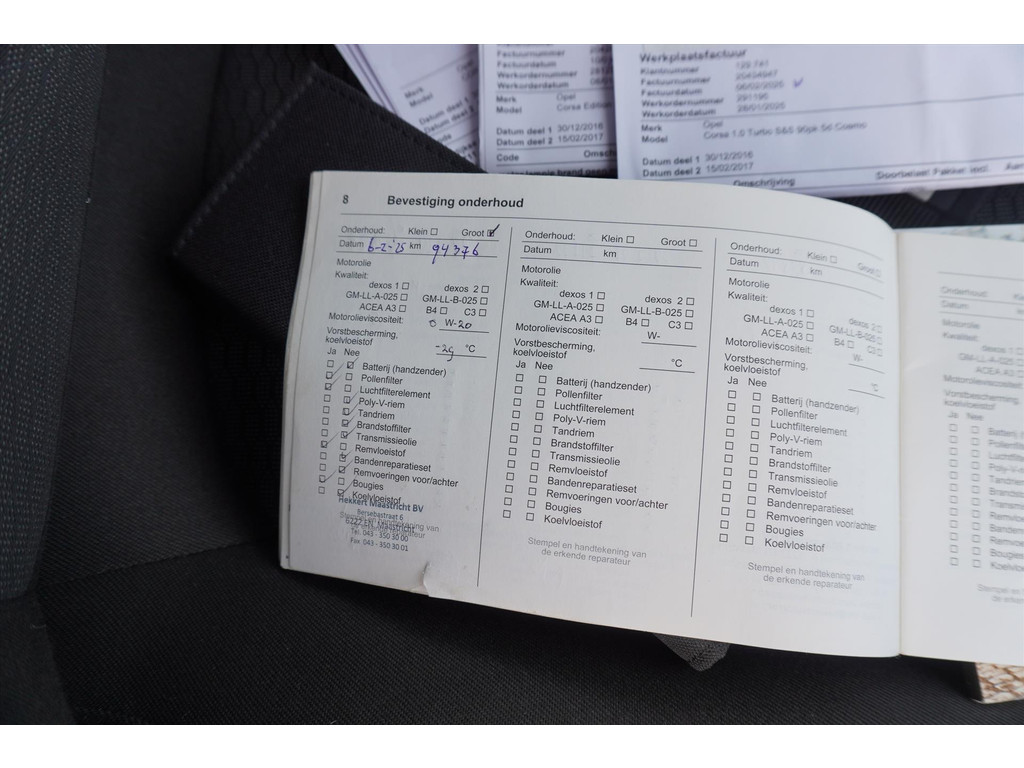 Werkplaatsfactuur
Klantnummer
Factuurnummer
Factuurdatum
Werkordernummer
Werkorderdatum
Merk Opel
Model Corsa 1.0 Turbo S&S 90pk 5d Cosmo
Datum deel 1 30/12/2016
Datum deel 2 15/02/2017
Omschrijving
Factuurnummer
Factuurdatum
Werkordernummer
Werkorderdatum
Merk Opel
Model Corsa Edition
Datum deel 1 30/12/2016
Datum deel 2 15/02/2017
Code
Merk
Model
Datum deel 1
Datum deel 2
8 Bevestiging onderhoud
Onderhoud: Klein Groot
Datum 6-2-'25 km 94376
Motorolie
Kwaliteit:
dexos 1 dexos 2
GM-LL-A-025 GM-LL-B-025
ACEA A3 B4 C3
Motorolieviscositeit: 0 W-20
Vorstbescherming,
koelvloeistof -29 °C
Ja Nee
Batterij (handzender)
Pollenfilter
Luchtfilterelement
Poly-V-riem
Tandriem
Brandstoffilter
Transmissieolie
Remvloeistof
Bandenreparatieset
Remvoeringen voor/achter
Bougies
Koelvloeistof
Hekkert Maastricht BV
Bersebastraat 6
Tel. 043 - 350 30 00
Fax 043 - 350 30 01
Onderhoud: Klein Groot
Datum km
Motorolie
Kwaliteit:
dexos 1 dexos 2
GM-LL-A-025 GM-LL-B-025
ACEA A3 B4 C3
Motorolieviscositeit: W-
Vorstbescherming,
koelvloeistof °C
Ja Nee
Batterij (handzender)
Pollenfilter
Luchtfilterelement
Poly-V-riem
Tandriem
Brandstoffilter
Transmissieolie
Remvloeistof
Bandenreparatieset
Remvoeringen voor/achter
Bougies
Koelvloeistof
Stempel en handtekening van
de erkende reparateur
Onderhoud: Klein Groot
Datum km
Motorolie
Kwaliteit:
dexos 1 dexos 2
GM-LL-A-025 GM-LL-B-025
ACEA A3 B4 C3
Motorolieviscositeit: W-
Vorstbescherming,
koelvloeistof °C
Ja Nee
Batterij (handzender)
Pollenfilter
Luchtfilterelement
Poly-V-riem
Tandriem
Brandstoffilter
Transmissieolie
Remvloeistof
Bandenreparatieset
Remvoeringen voor/achter
Bougies
Koelvloeistof
Stempel en handtekening van
de erkende reparateur
Onderhoud:
Datum
Motorolie
Kwaliteit
dexos 1
GM-LL-A-025
ACEA A3
Vorstbescherming
koelvloeistof
Ja Nee